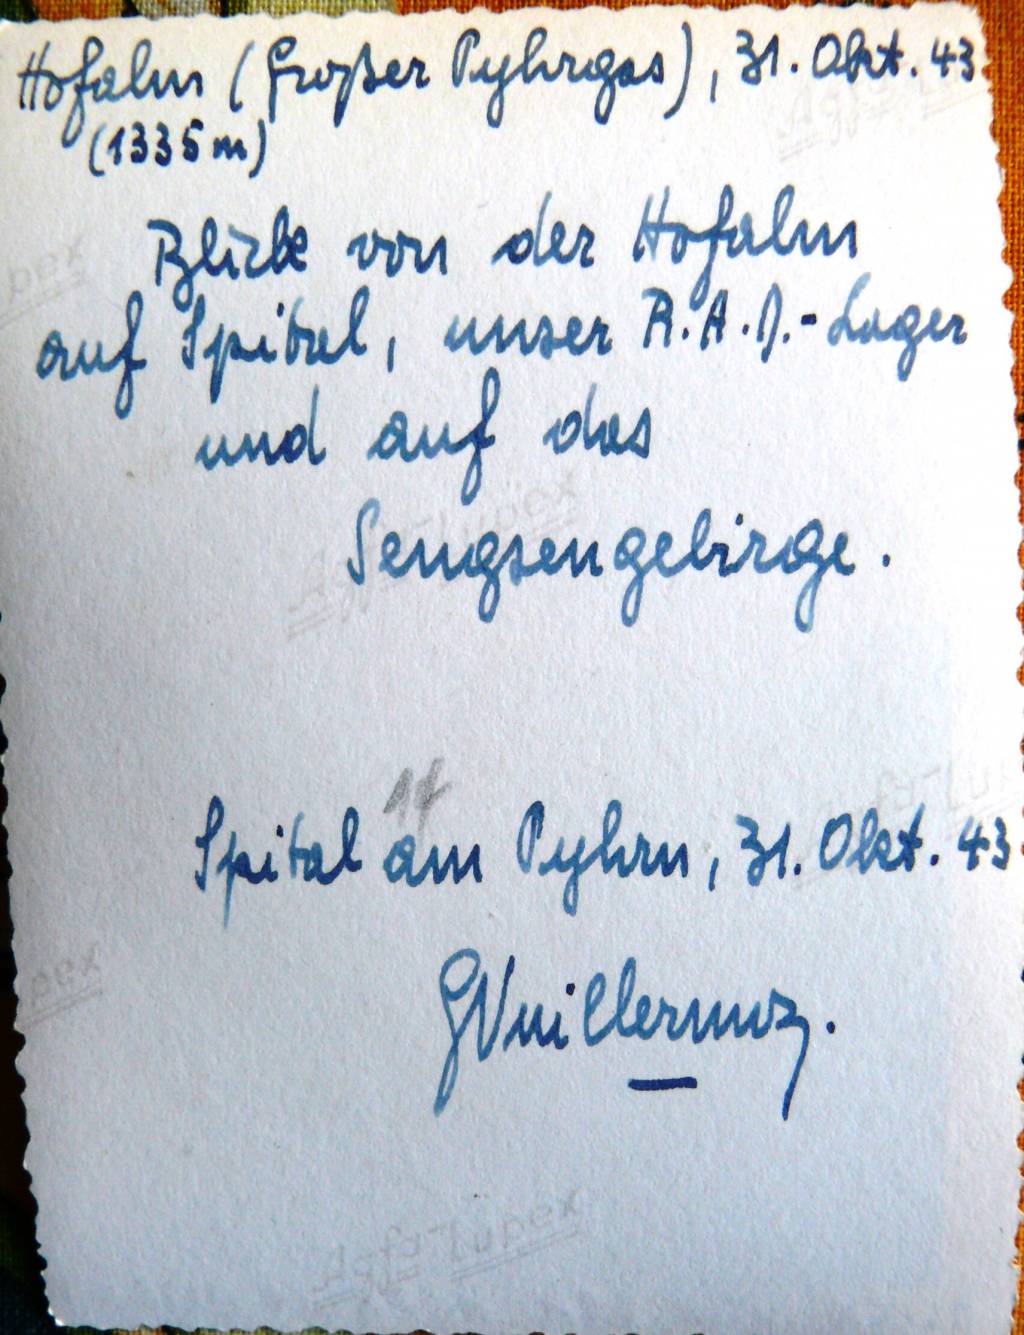 Hofalm (Großer Pyhrgas), 31. Okt. 43
(1335 m)
Blick von der Hofalm
auf Spital, unser R.A.D.-Lager
und auf das
Sengsengebirge.
14
Spital am Pyhrn, 31. Okt. 43
GVuillermoz.
Agfa-Lupex